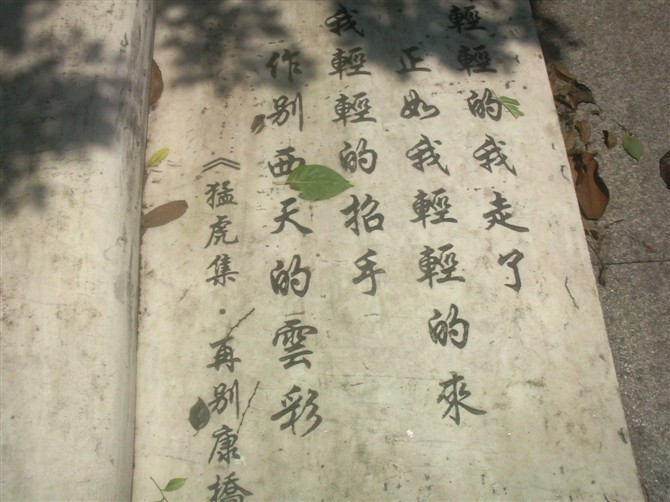 輕輕的我走了
正如我輕輕的來
我輕輕的招手
作別西天的雲彩
《猛虎集·再別康橋